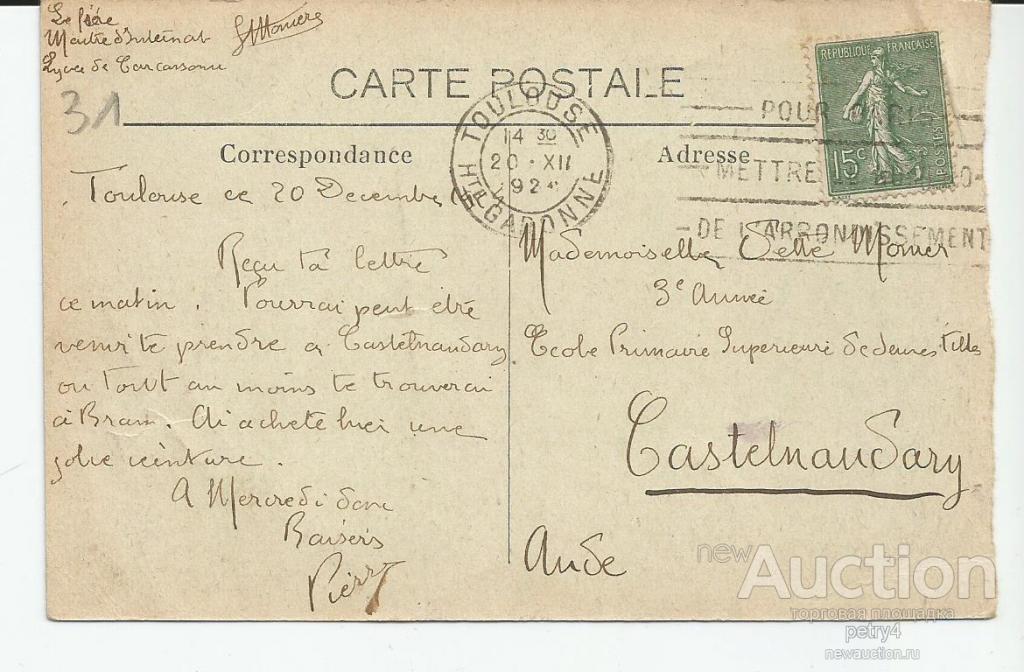 Le frère
Maitre d'Internat
Lycée de Carcassonne
31
CARTE POSTALE
REPUBLIQUE FRANÇAISE
15c
POSTES
TOULOUSE
14 30
20 · XII
192
HTE GARONNE
POUR
METTRE
DE L'ARRONDISSEMENT
Correspondance
Adresse
Toulouse ce 20 Decembre
Reçu ta lettre
ce matin. Pourrai peut être
venir te prendre a Castelnaudary
ou tout au moins te trouverai
à Bram. Ai acheté hier une
jolie ceinture.
A Mercredi donc
Baisers
Pierre
Mademoiselle Momer
3e Année
Ecole Primaire Superieure de Jeunes Filles
Castelnaudary
Aude
newAuction
торговая площадка
petry4
newauction.ru